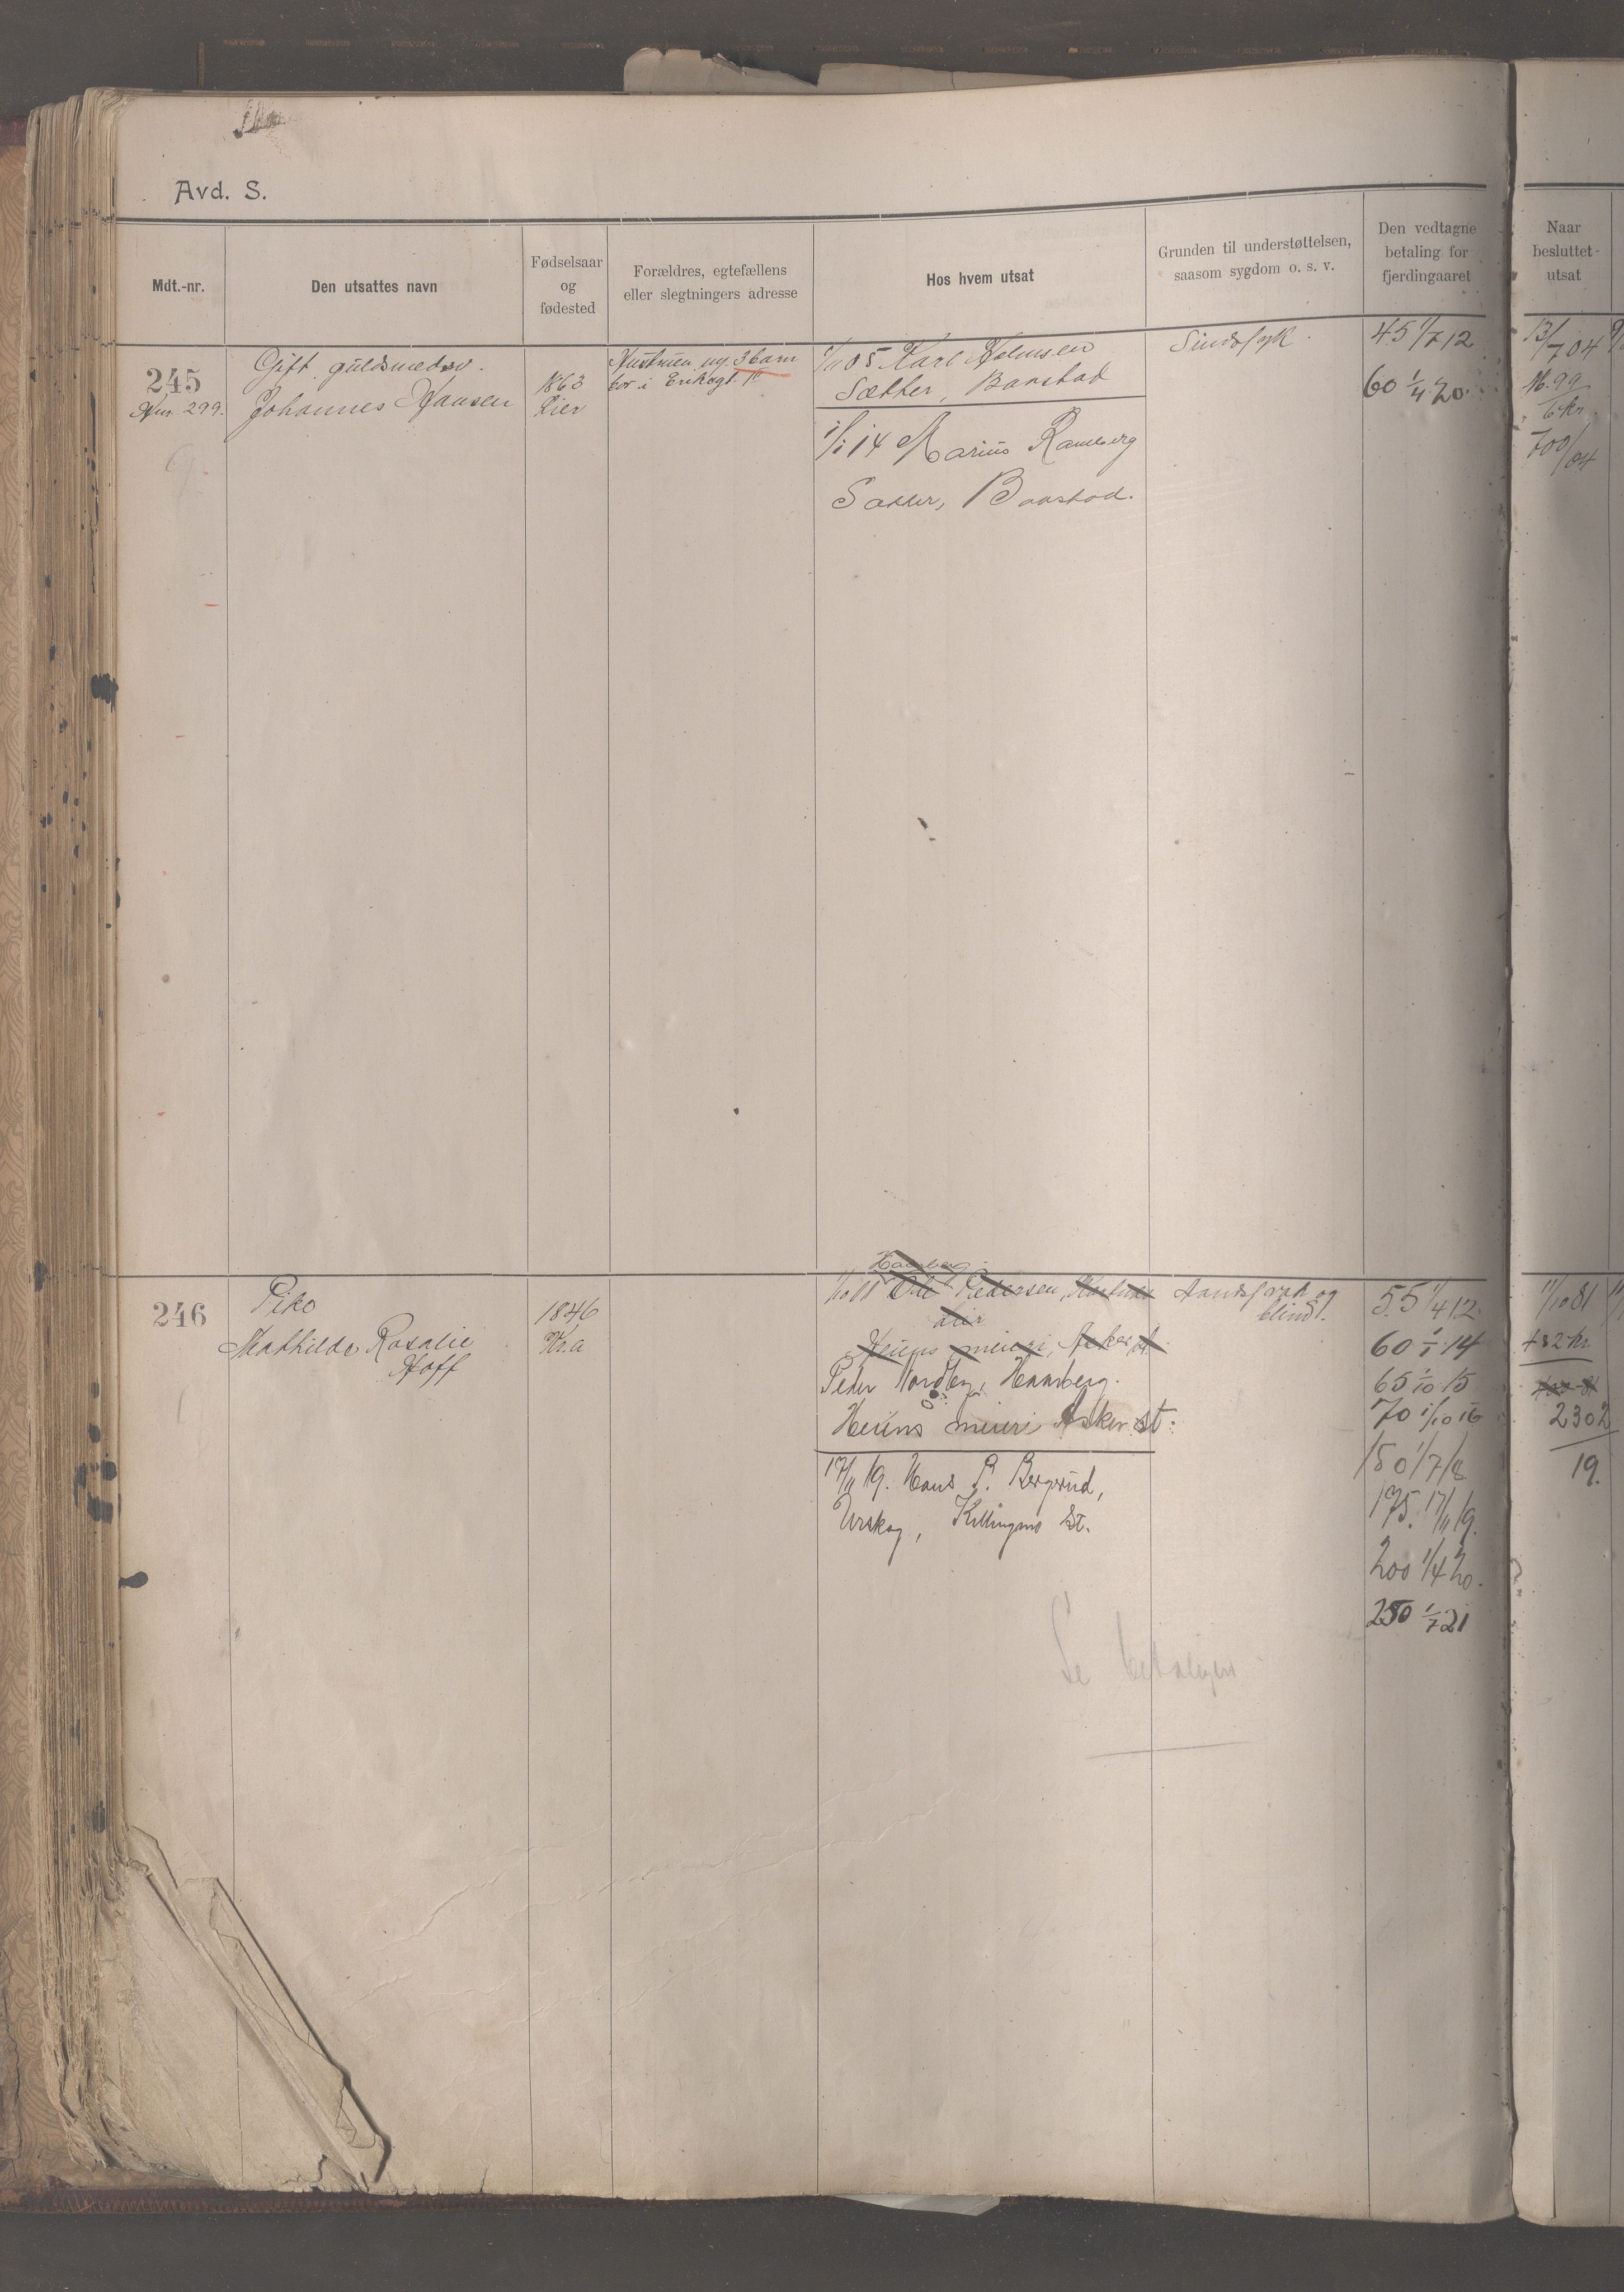 Avd. S.
Mdt.-nr.
Den utsattes navn
Fødselsaar
og
fødested
Forældres, egtefællens
eller slegtningers adresse
Hos hvem utsat
Grunden til understøttelsen,
saasom sygdom o. s. v.
Den vedtagne
betaling for
fjerdingaaret
Naar
besluttet
utsat
245
299.
Gift guldsmedsv.
Johannes Hansen
1863
Lier
Hustruen og 3 barn
bor i
1/11 05 Karl Holmsen
Sæther, Baastad
1/1 14 Marius Ramberg
Sæther, Baastad.
Sindssyk.
45 1/7 12
60 1/4 20.
13/7 04
16.99
6 kr.
700/04
246
Piko
Mathilde Rosalie
Hoff
1846
Kr.a
Haarberg
Ole Pedersen,
Heiens meieri, Asker st.
Peder Nordby, Haarberg.
Heiens meieri Asker st.
17/11 19. Hans P. Bergerud,
Urskog, Killingmo St.
Aandssvak og
blind.
55 1/4 12.
60 1/1 14
65 1/10 15
70 1/10 16
150 1/7 18
175. 17/11 19.
200 1/4 20.
250 1/7 21
11/10 81
432 kr.
2302
19.
Se betalingen